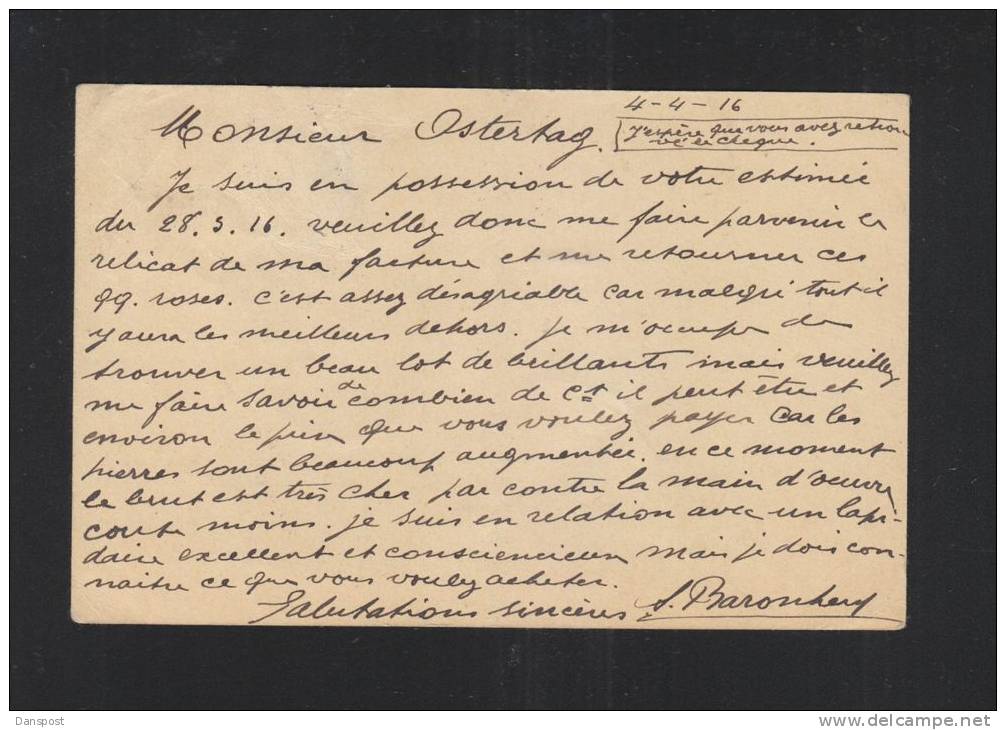 4-4-16
J'espère que vous avez retrou
vé le chèque.
Monsieur Ostertag.
Je suis en possession de votre estimée
du 28.3.16. veuillez donc me faire parvenir le
relicat de ma facture et me retourner ces
qq. roses. c'est assez désagriable car malgré tout il
y aura les meilleurs dehors. je m'occupe de
trouver un beau lot de brillants mais veuillez
me faire savoir de combien de ct il peut être et
environ le prix que vous voulez payer car les
pierres sont beaucoup augmentée. en ce moment
le brut est très cher par contre la main d'oeuvre
coute moins. je suis en relation avec un lapi-
daire excellent et consciencieux mais je dois con-
naitre ce que vous voulez acheter.
Salutations sincères S.
Danspost
www.delcampe.net